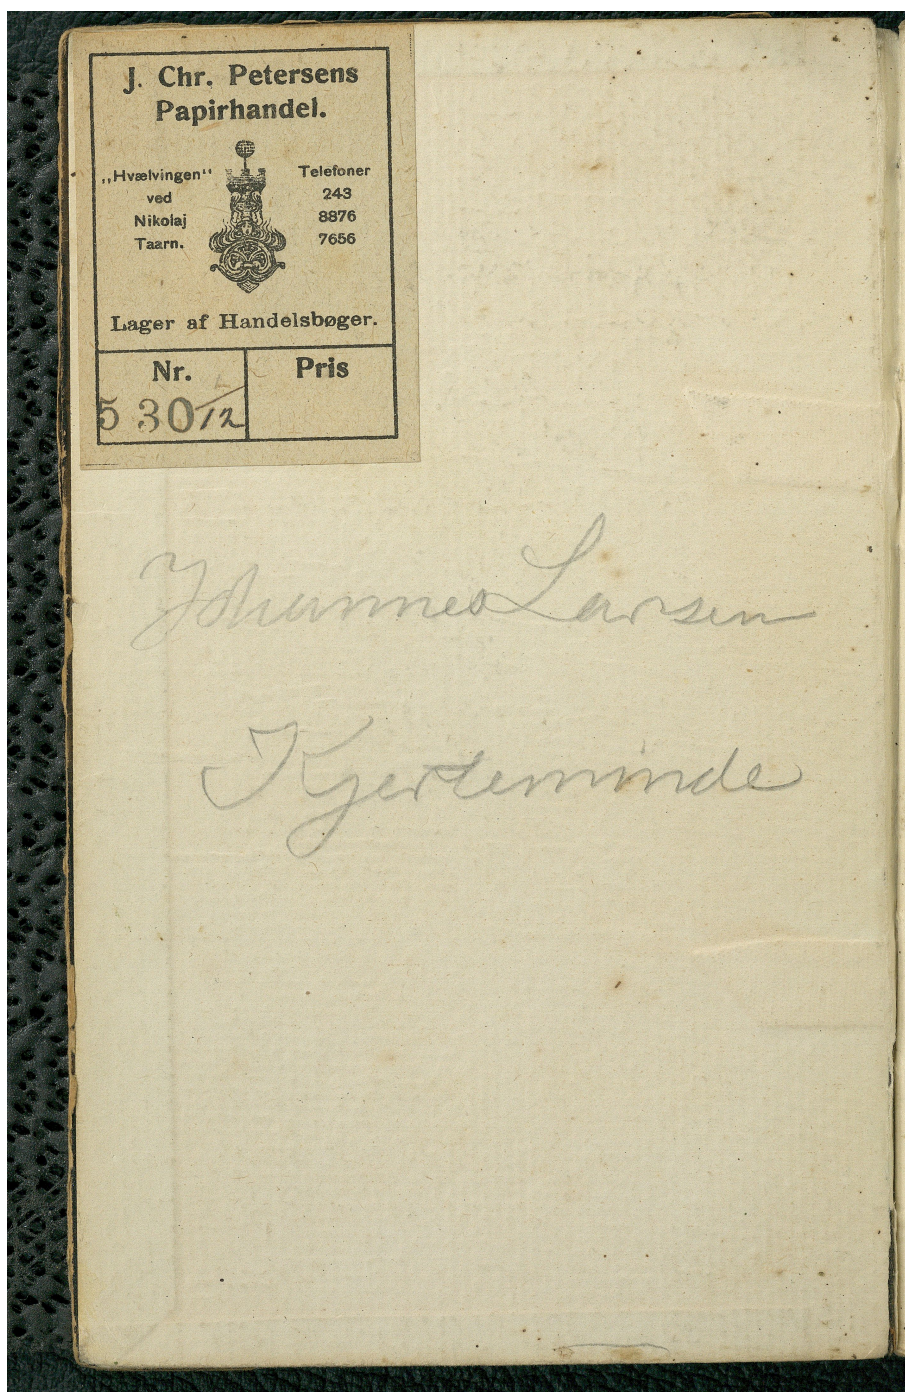 J. Chr. Petersens
Papirhandel.
„Hvælvingen“
ved
Nikolaj
Taarn.
Telefoner
243
8876
7656
Lager af Handelsbøger.
Nr.
Pris
5 30 1/2
Johannes Larsen
Kjerteminde